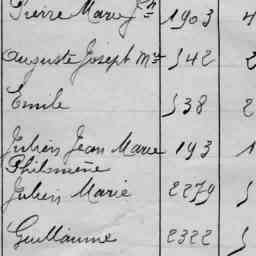 Pierre Marie Jn 1903 4
Auguste Joseph Mie 542 2
Emile 538 2
Julien Jean Marie 193 1
Philomène
Julien Marie 2279 5
Guillaume 2322 5